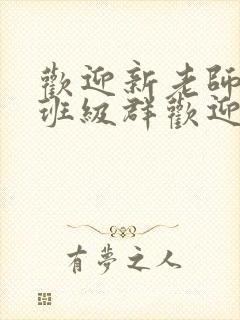 歡迎新老師
班級群歡迎
有夢之人